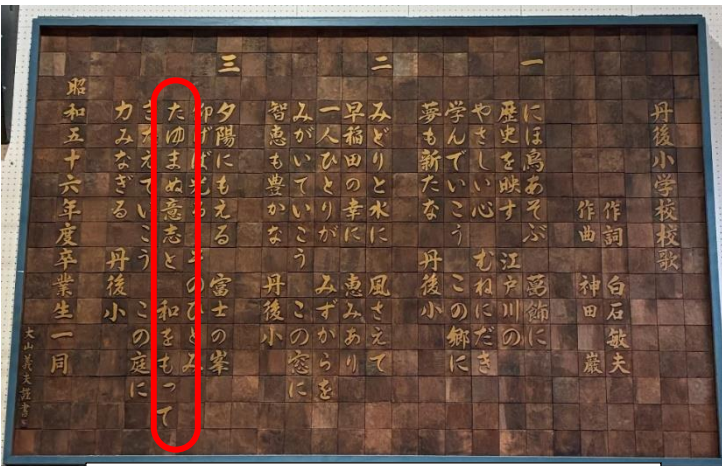 丹後小学校校歌
作詞　白石敏夫
作曲　神田　巌
一
にほ鳥あそぶ　葛飾に
歴史を映す　江戸川の
やさしい心　むねにだき
学んでいこう　この郷に
夢も新たな　丹後小
二
みどりと水に　風さえて
早稲田の幸に　恵みあり
一人ひとりが　みずからを
みがいていこう　この窓に
智恵も豊かな　丹後小
三
夕陽にもえる　富士の峯
仰げば光る　そのひとみ
たゆまぬ意志と　和をもって
きたえていこう　この庭に
力みなぎる　丹後小
昭和五十六年度卒業生一同